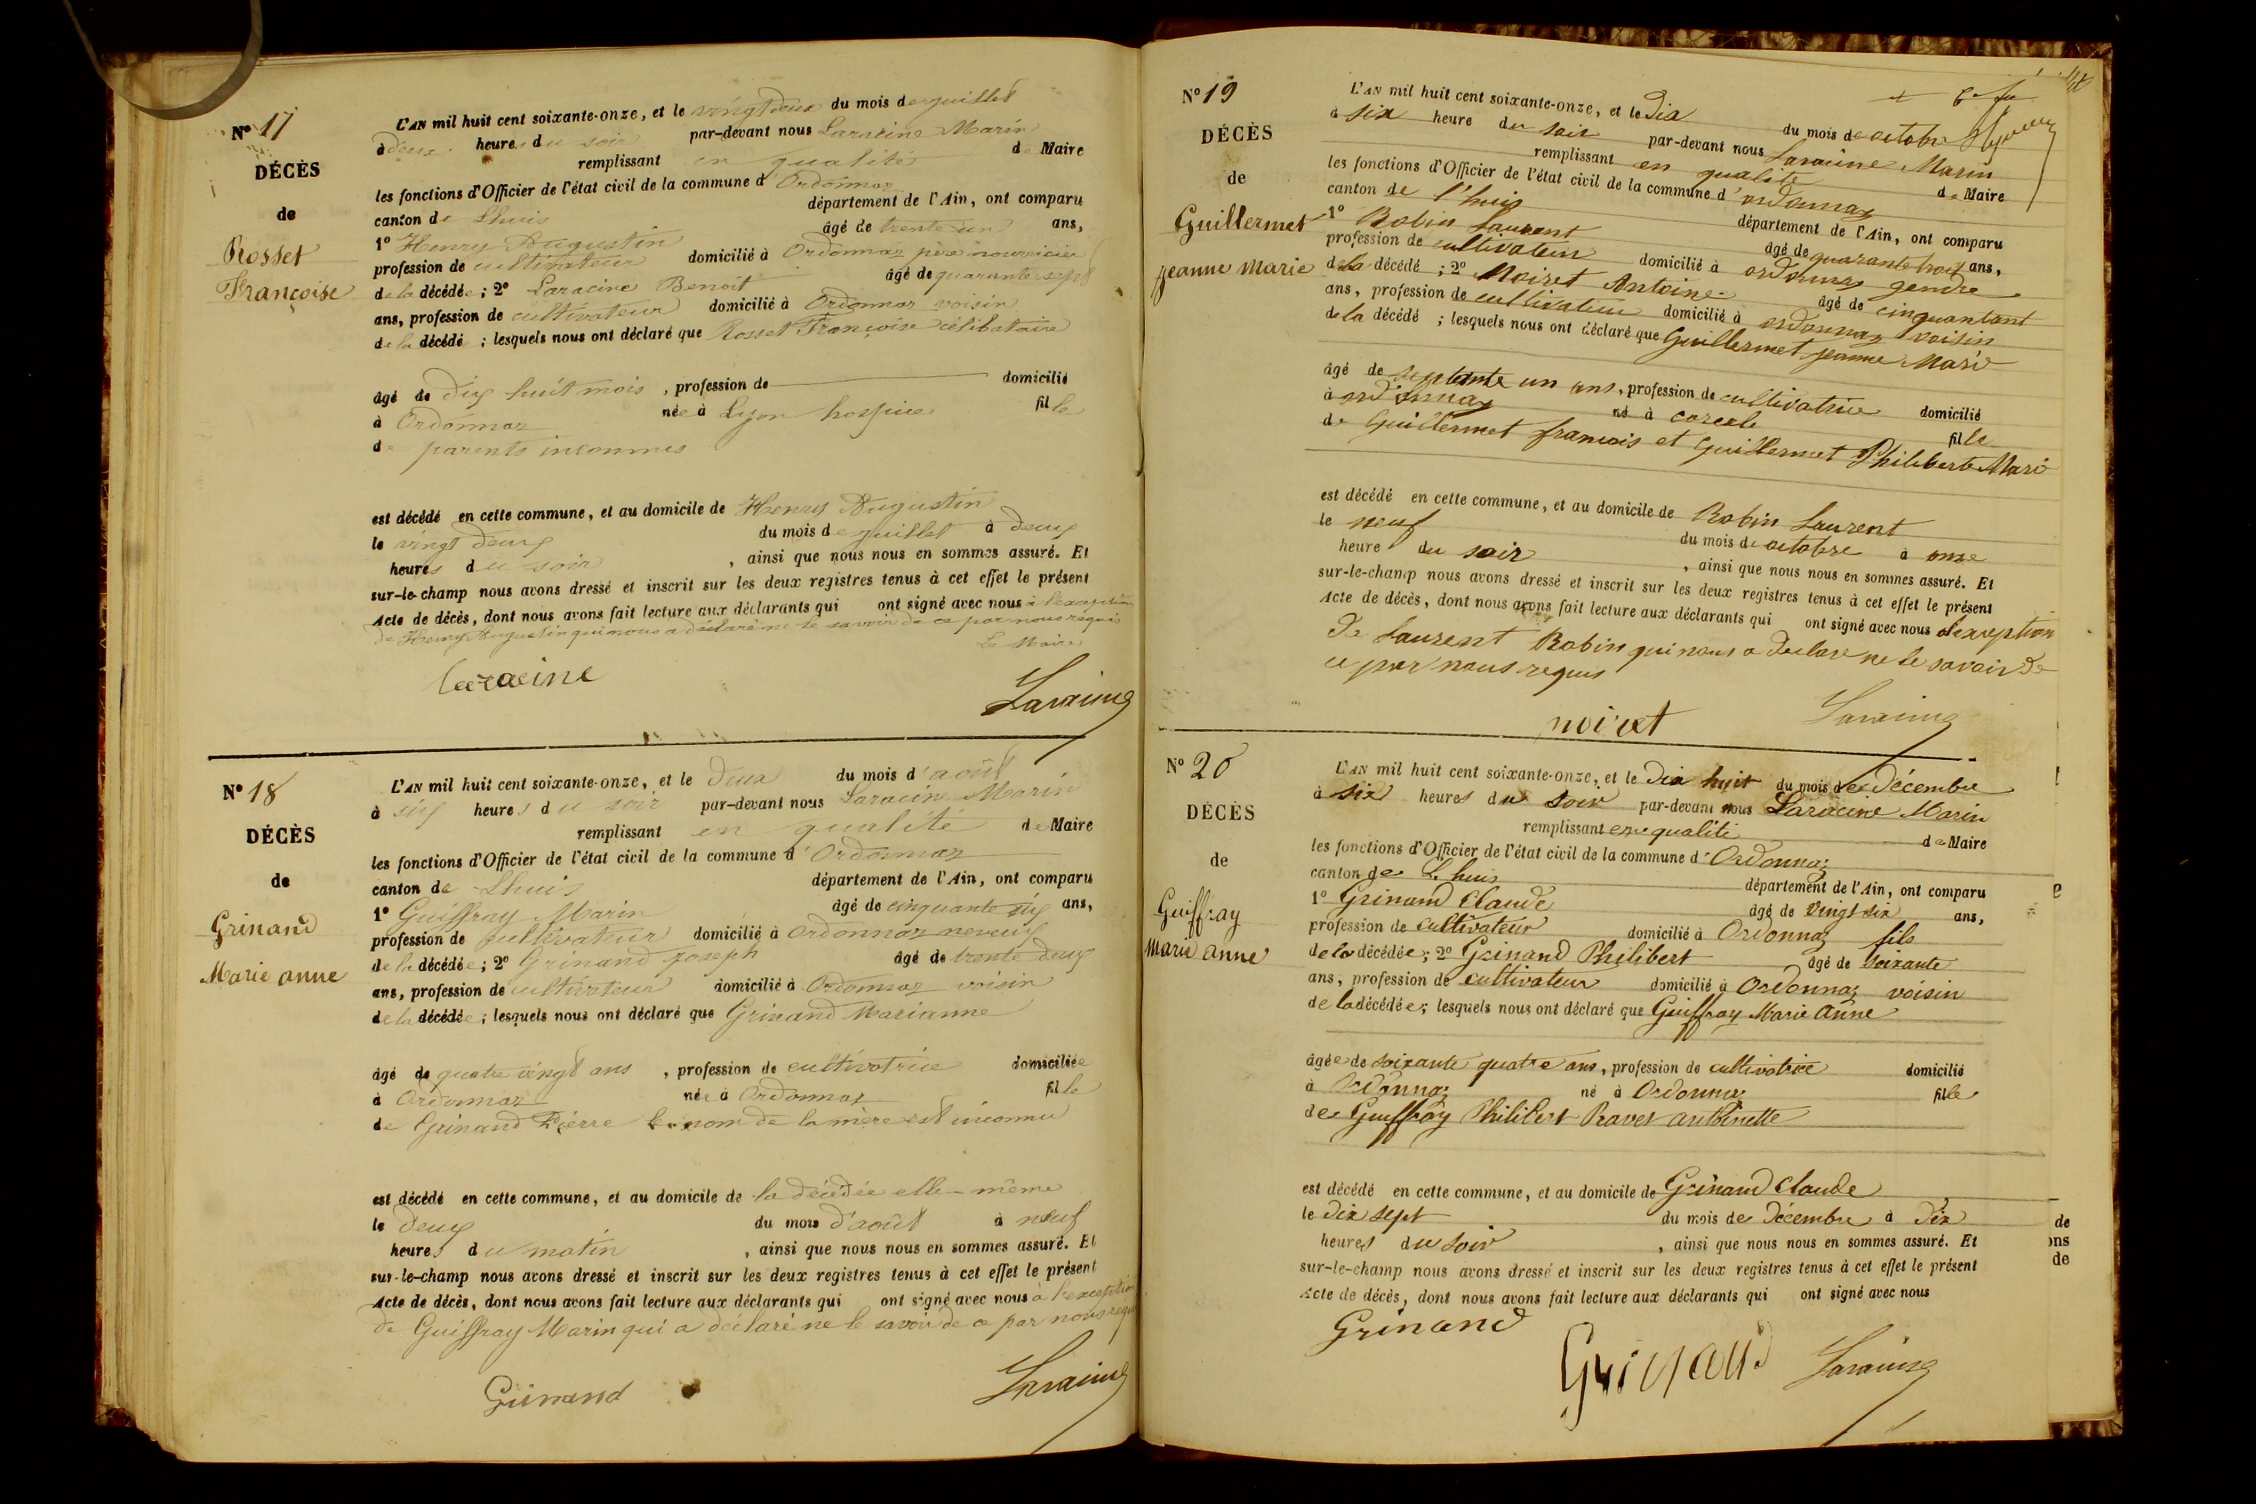 N° 17
DÉCÈS
de
Rosset
Françoise
L'AN mil huit cent soixante-onze, et le vingt deux du mois de juillet
à deux heures du soir par-devant nous Laracine Marin
remplissant en qualité de Maire
les fonctions d'Officier de l'état civil de la commune d'Ordonnaz
canton de Lhuis département de l'Ain, ont comparu
1° Henry Augustin âgé de trente un ans,
profession de cultivateur domicilié à Ordonnaz père nourricier
de la décédée ; 2° Laracine Benoit âgé de quarante sept
ans, profession de cultivateur domicilié à Ordonnaz voisin
de la décédé ; lesquels nous ont déclaré que Rosset Françoise célibataire
âgé de dix huit mois , profession de domicilié
à Ordonnaz née à Lyon hospice fille
de parents inconnus
est décédé en cette commune, et au domicile de Henry Augustin
le vingt deux du mois de juillet à deux
heures du soir , ainsi que nous nous en sommes assuré. Et
sur-le-champ nous avons dressé et inscrit sur les deux registres tenus à cet effet le présent
Acte de décès, dont nous avons fait lecture aux déclarants qui ont signé avec nous à l'exception
de Henry Augustin qui nous a déclaré ne le savoir de ce par nous requis
Le Maire
Laracine
Laracine
N° 18
DÉCÈS
de
Grinand
Marie anne
L'AN mil huit cent soixante-onze, et le deux du mois d'août
à six heures du soir par-devant nous Laracine Marin
remplissant en qualité de Maire
les fonctions d'Officier de l'état civil de la commune d'Ordonnaz
canton de Lhuis département de l'Ain, ont comparu
1° Guiffray Marin âgé de cinquante six ans,
profession de cultivateur domicilié à Ordonnaz neveux
de la décédée ; 2° Grinand joseph âgé de trente deux
ans, profession de cultivateur domicilié à Ordonnaz voisin
de la décédée ; lesquels nous ont déclaré que Grinand Marianne
âgé de quatre vingt ans , profession de cultivatrice domiciliée
à Ordonnaz née à Ordonnaz fille
de Grinand Pierre le nom de la mère est inconnu
est décédé en cette commune, et au domicile de la décédée elle-même
le deux du mois d'août à neuf
heures du matin , ainsi que nous nous en sommes assuré. Et
sur-le-champ nous avons dressé et inscrit sur les deux registres tenus à cet effet le présent
Acte de décès, dont nous avons fait lecture aux déclarants qui ont signé avec nous à l'exception
de Guiffray Marin qui a déclaré ne le savoir de ce par nous requis
Grinand
Laracine
N° 19
DÉCÈS
de
Guillermet
jeanne Marie
L'AN mil huit cent soixante-onze, et le Dix du mois de octobre
à six heure du soir par-devant nous Laracine Marin
remplissant en qualité de Maire
les fonctions d'Officier de l'état civil de la commune d'ordonnaz
canton de l'huis département de l'Ain, ont comparu
1° Robin Laurent âgé de quarante trois ans,
profession de cultivateur domicilié à ordonnaz gendre
de la décédé ; 2° Noiret Antoine âgé de cinquantant
ans, profession de cultivateur domicilié à ordonnaz voisin
de la décédé ; lesquels nous ont déclaré que Guillermet jeanne Marie
âgé de un ans, profession de cultivatrice domicilié
à ordonnaz né à fille
de Guillermet francois et Guillermet Philiberte Mari
est décédé en cette commune, et au domicile de Robin Laurent
le neuf du mois de octobre à onze
heure du soir , ainsi que nous nous en sommes assuré. Et
sur-le-champ nous avons dressé et inscrit sur les deux registres tenus à cet effet le présent
Acte de décès, dont nous avons fait lecture aux déclarants qui ont signé avec nous a lexception
De Laurent Robin qui nous a declare ne le savoir De
ce par nous requis
noiret
Laracine
N° 20
DÉCÈS
de
Guiffray
Marie anne
L'AN mil huit cent soixante-onze, et le Dix huit du mois de décembre
à six heures du soir par-devant nous Laracine Marin
remplissant en qualité de Maire
les fonctions d'Officier de l'état civil de la commune d'Ordonnaz
canton de L'huis département de l'Ain, ont comparu
1° Grinand Claude âgé de vingt six ans,
profession de cultivateur domicilié à Ordonnaz fils
de la décédée ; 2° Grinand Philibert âgé de soixante
ans, profession de cultivateur domicilié à Ordonnaz voisin
de la décédée ; lesquels nous ont déclaré que Guiffray Marie Anne
âgée de soixante quatre ans, profession de cultivatrice domicilié
à Ordonnaz né à Ordonnaz fille
de Guiffray Philibert Ravet antoinette
est décédé en cette commune, et au domicile de Grinand Claude
le Dix sept du mois de Décembre à Dix
heures du soir , ainsi que nous nous en sommes assuré. Et
sur-le-champ nous avons dressé et inscrit sur les deux registres tenus à cet effet le présent
Acte de décès, dont nous avons fait lecture aux déclarants qui ont signé avec nous
Grinand
Grinand
Laracine
de
ons
de